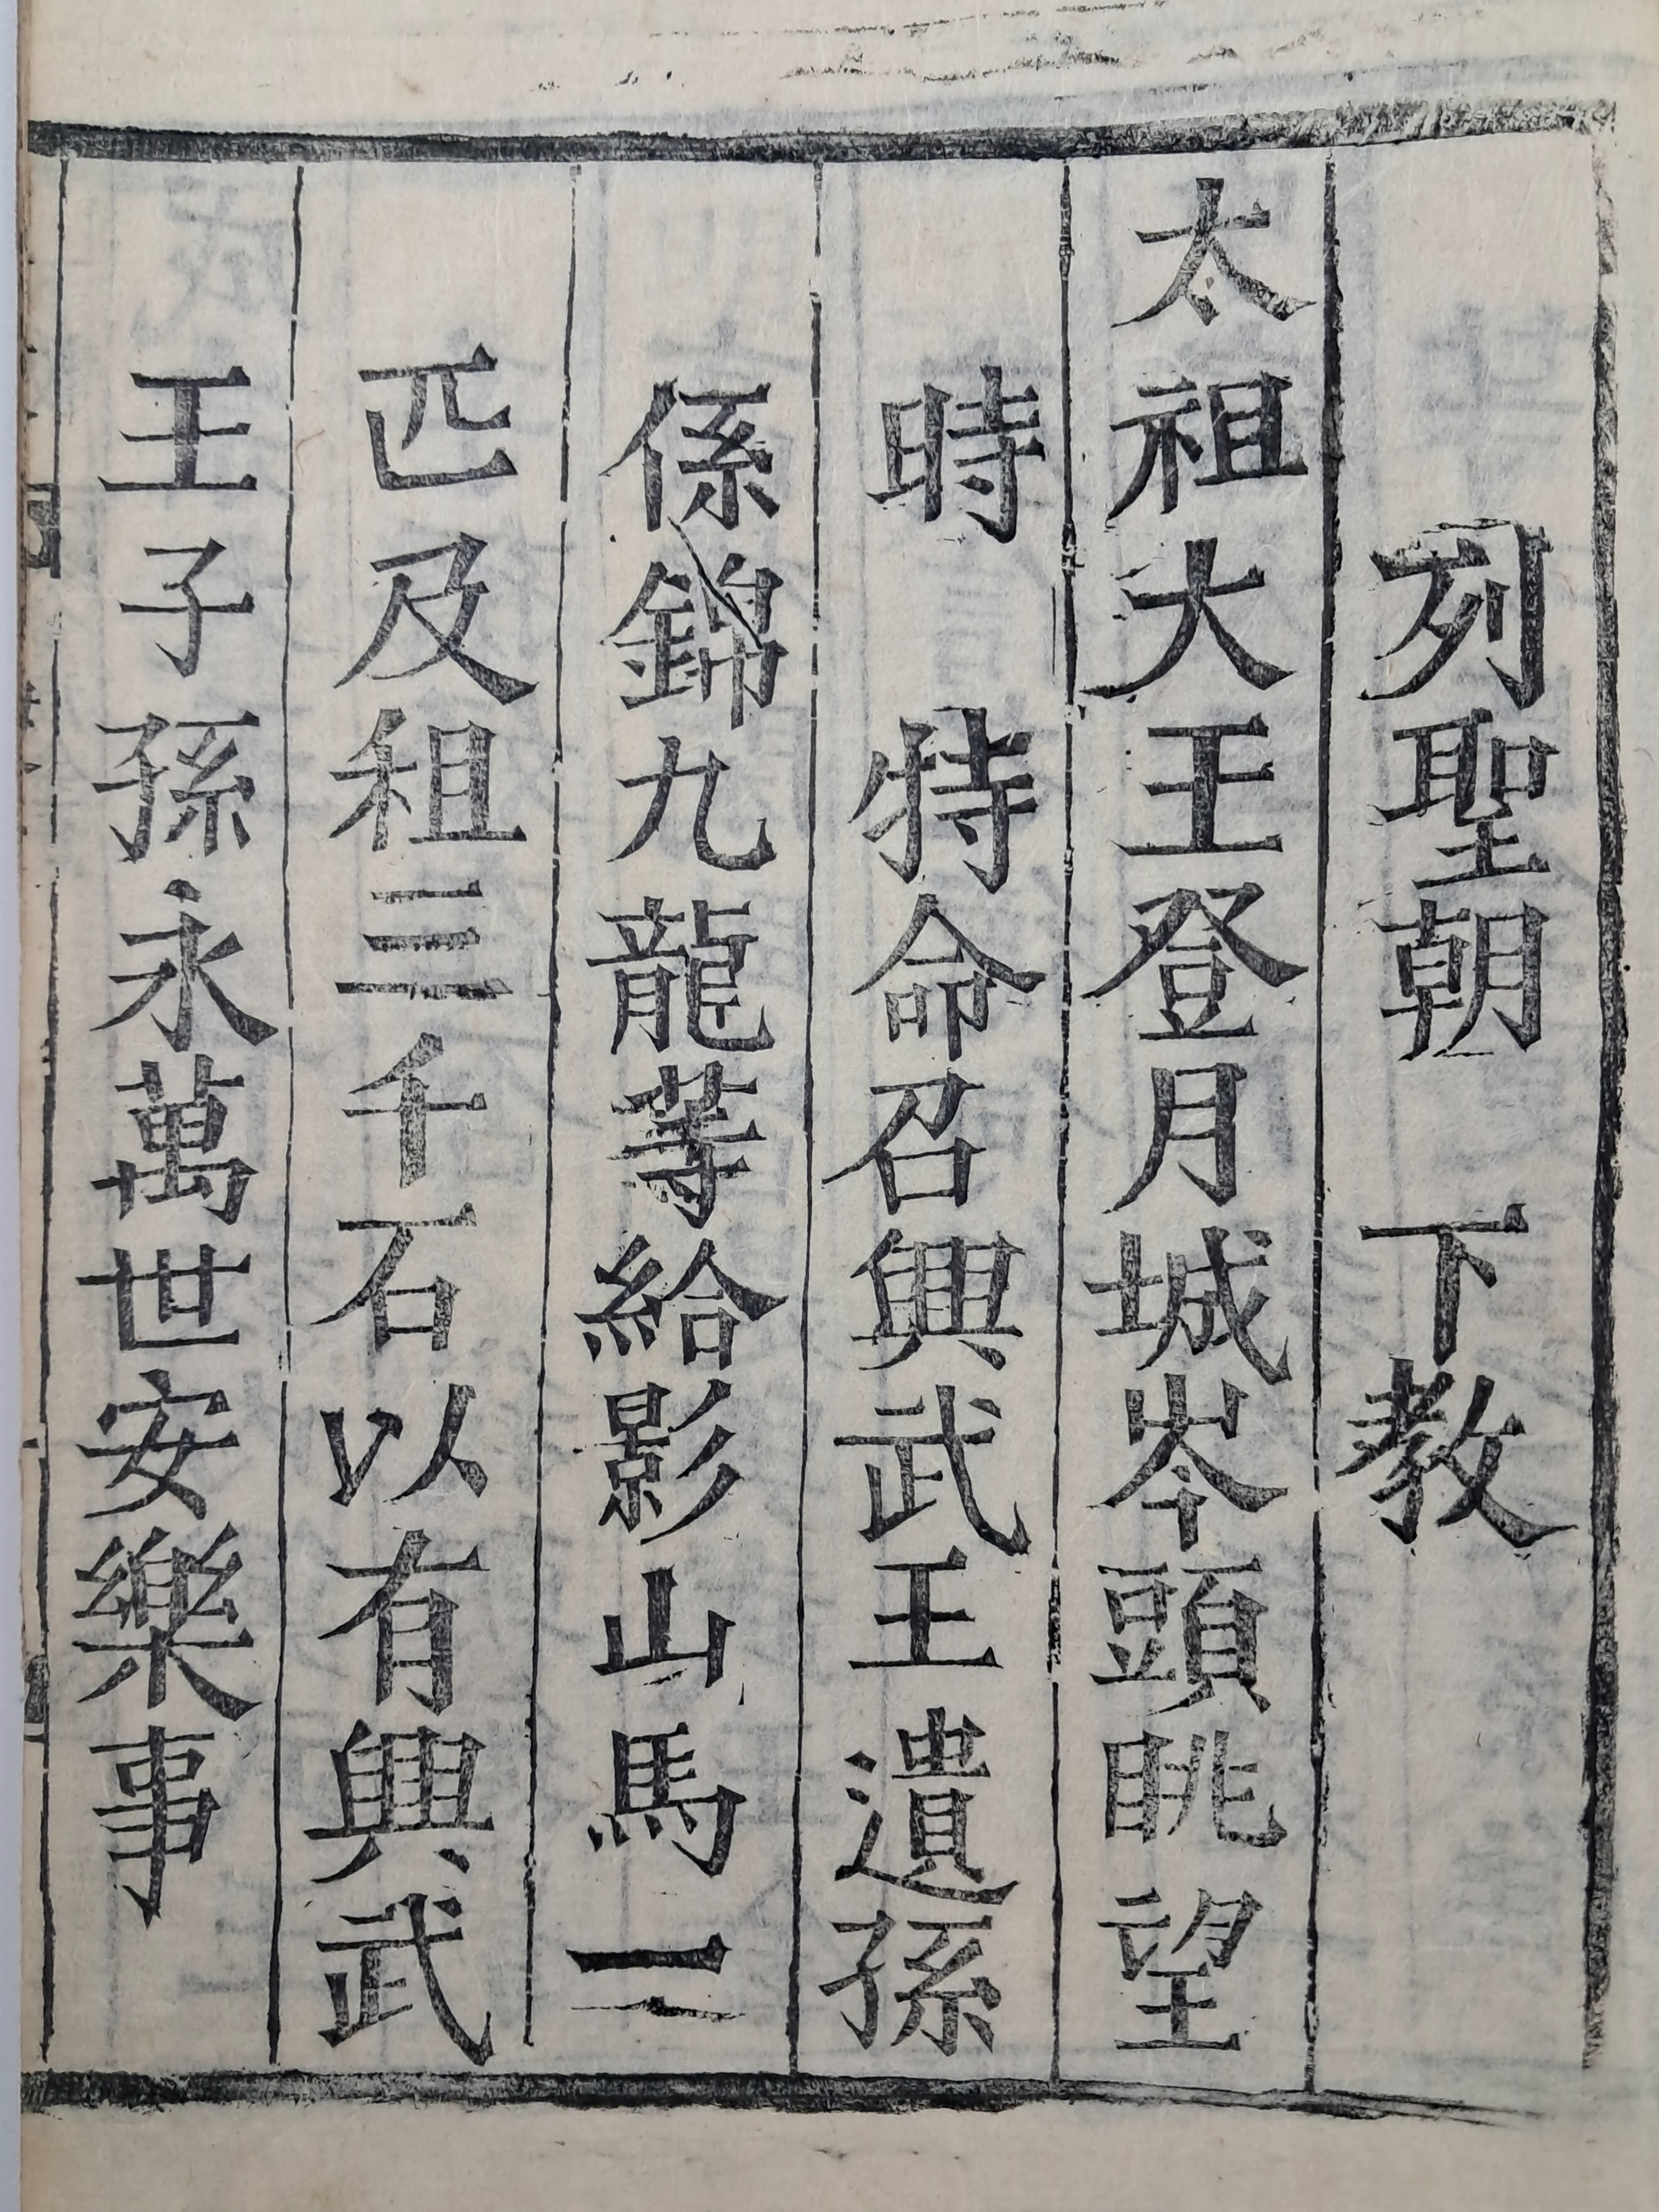 列聖朝　下教
太祖大王登月城岑頭眺望
時　特命召興武王遺孫
係錦九龍等給影山馬二
匹及租三千石以有興武
王子孫永萬世安樂事